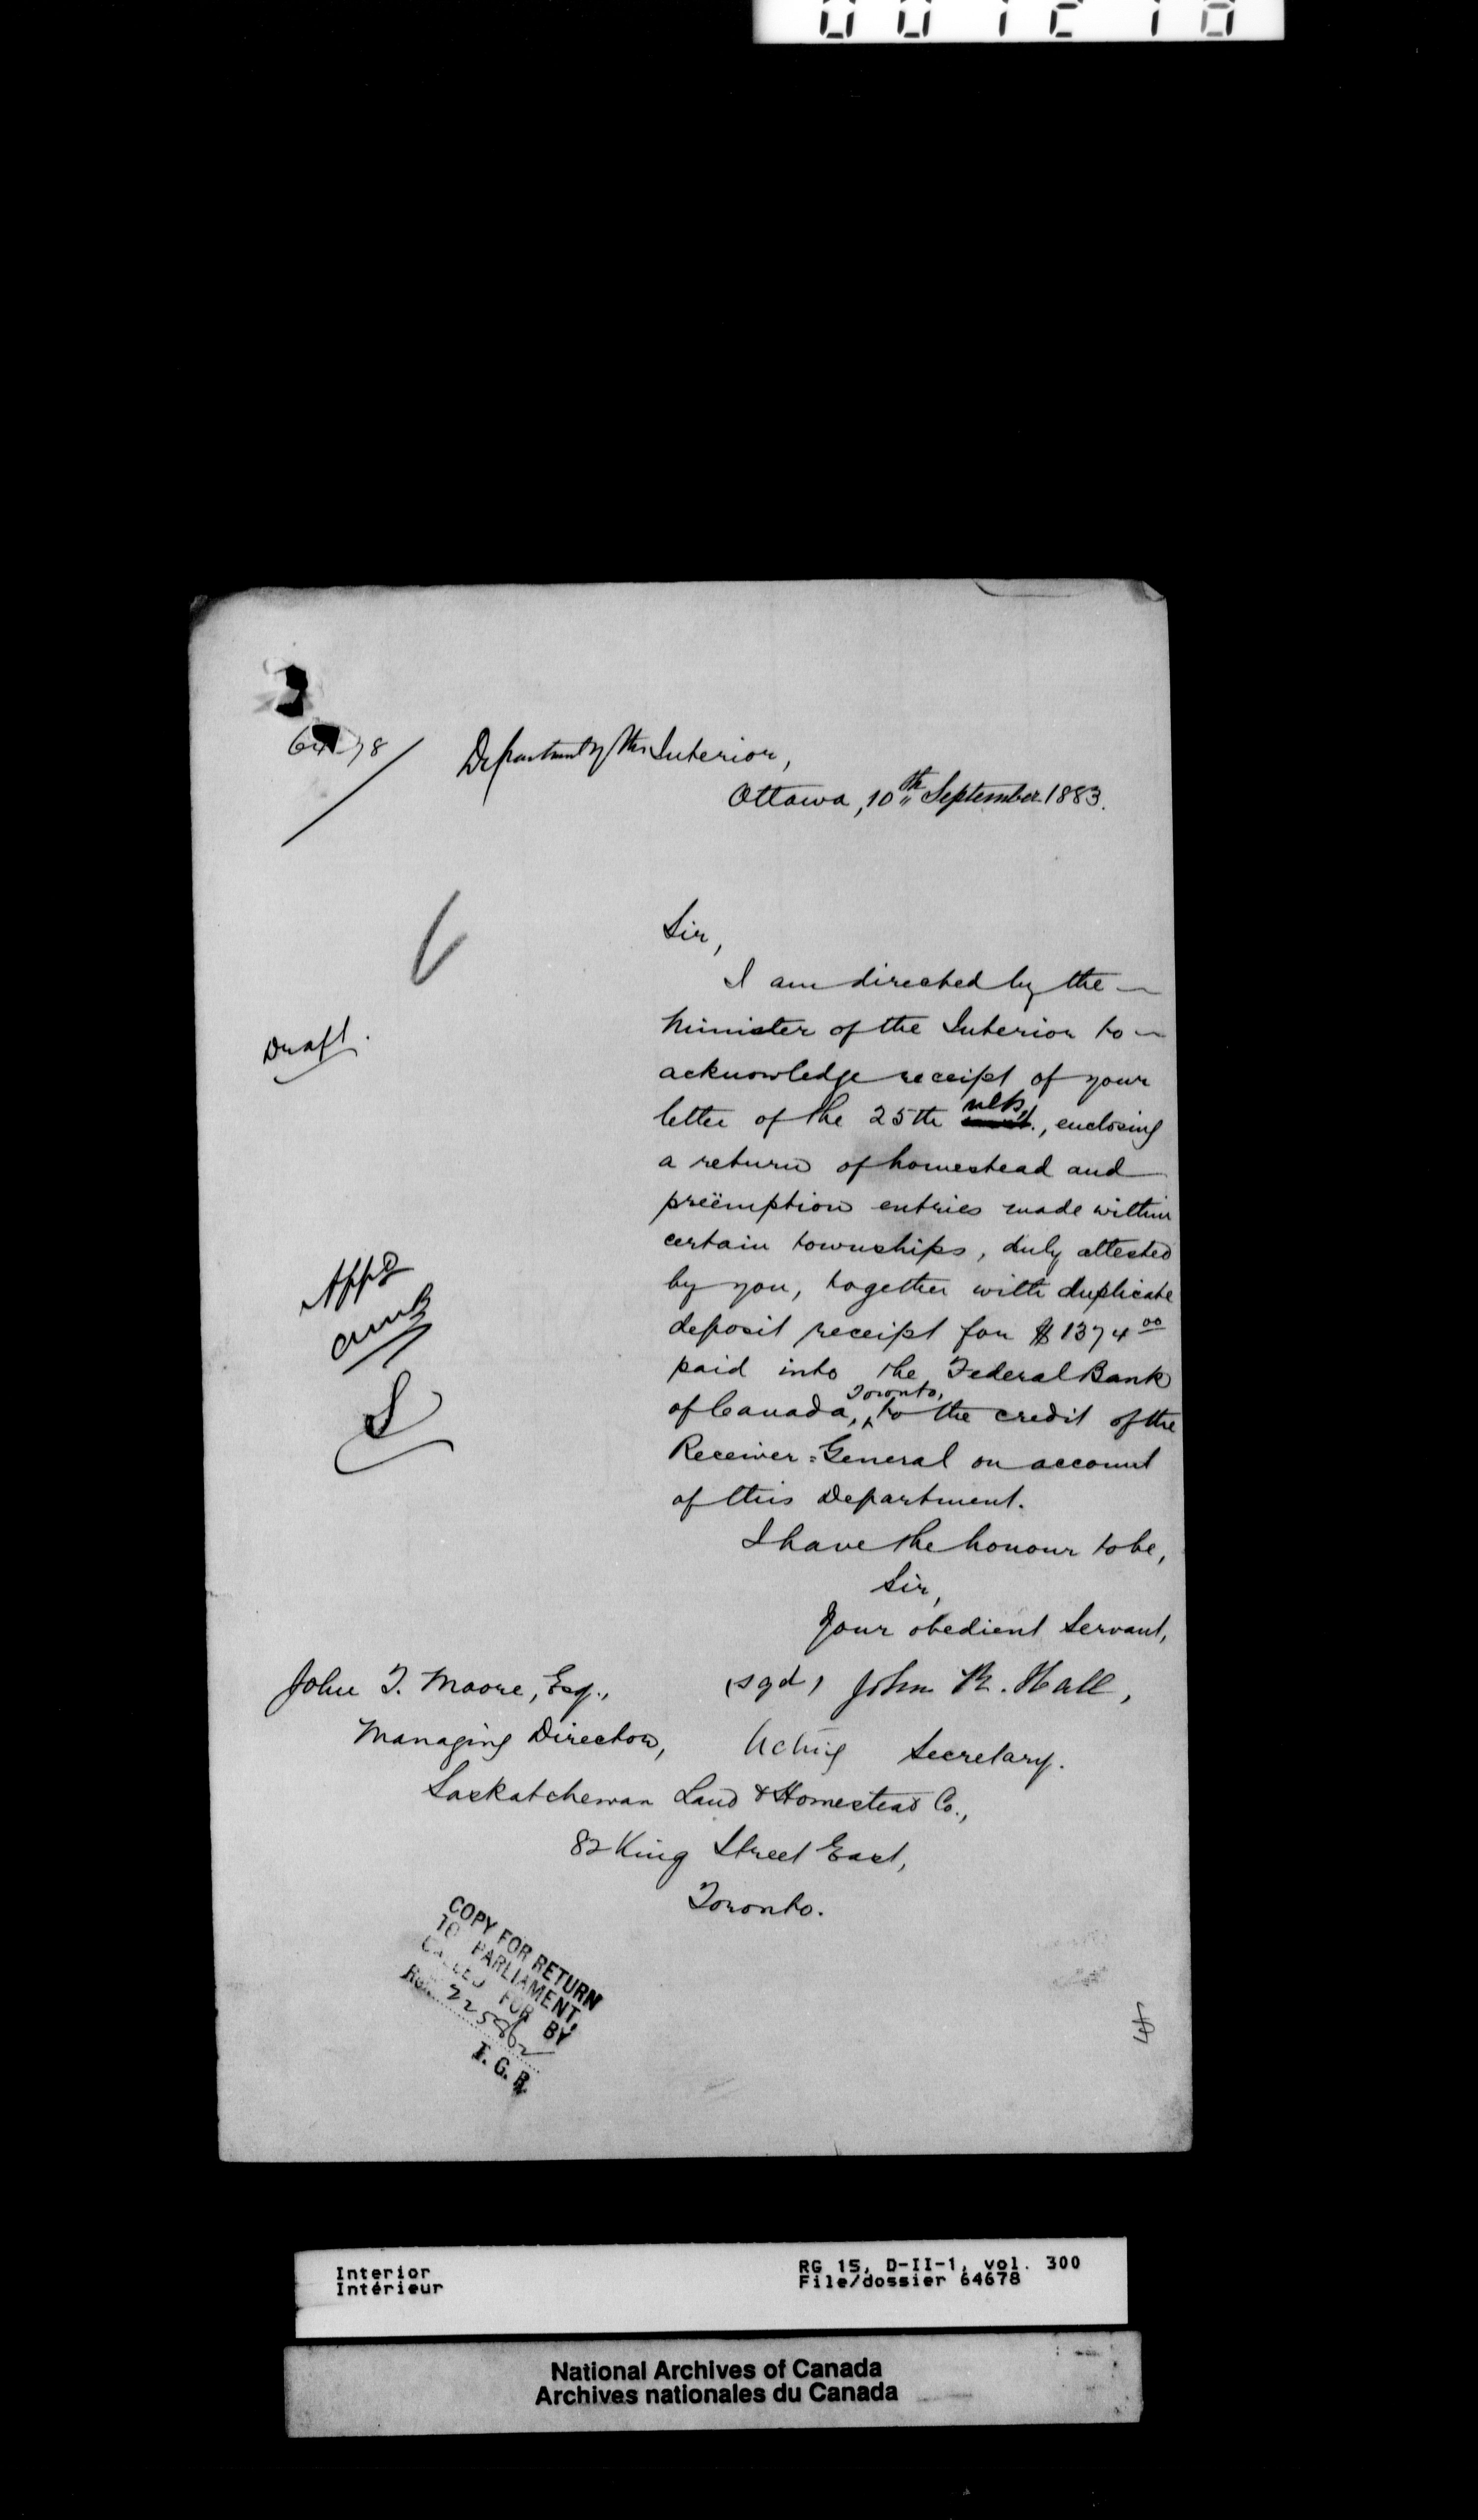 Department of the Interior,
Ottawa, 10th September 1883.
Sir,
I am directed by the
Minister of the Interior to
acknowledge receipt of your
Draft.
letter of the 25th ulto, enclosing
a return of homestead and
preëmption entries made within
certain townships, duly attested
by you, together with duplicate
deposit receipt for $1374 00
paid into the Federal Bank
of Canada, Toronto, to the credit of the
Receiver-General on account
of this Department.
I have the honour to be,
Sir,
Your obedient Servant,
(sgd) John R. Hall,
Acting Secretary.
John T. Moore, Esq.,
Managing Director,
Saskatchewan Land & Homestead Co.,
82 King Street East,
Toronto.
COPY FOR RETURN
TO PARLIAMENT,
CALLED FOR BY
T. G. R.
Interior
Intérieur
RG 15, D-II-1, vol. 300
File/dossier 64678
National Archives of Canada
Archives nationales du Canada